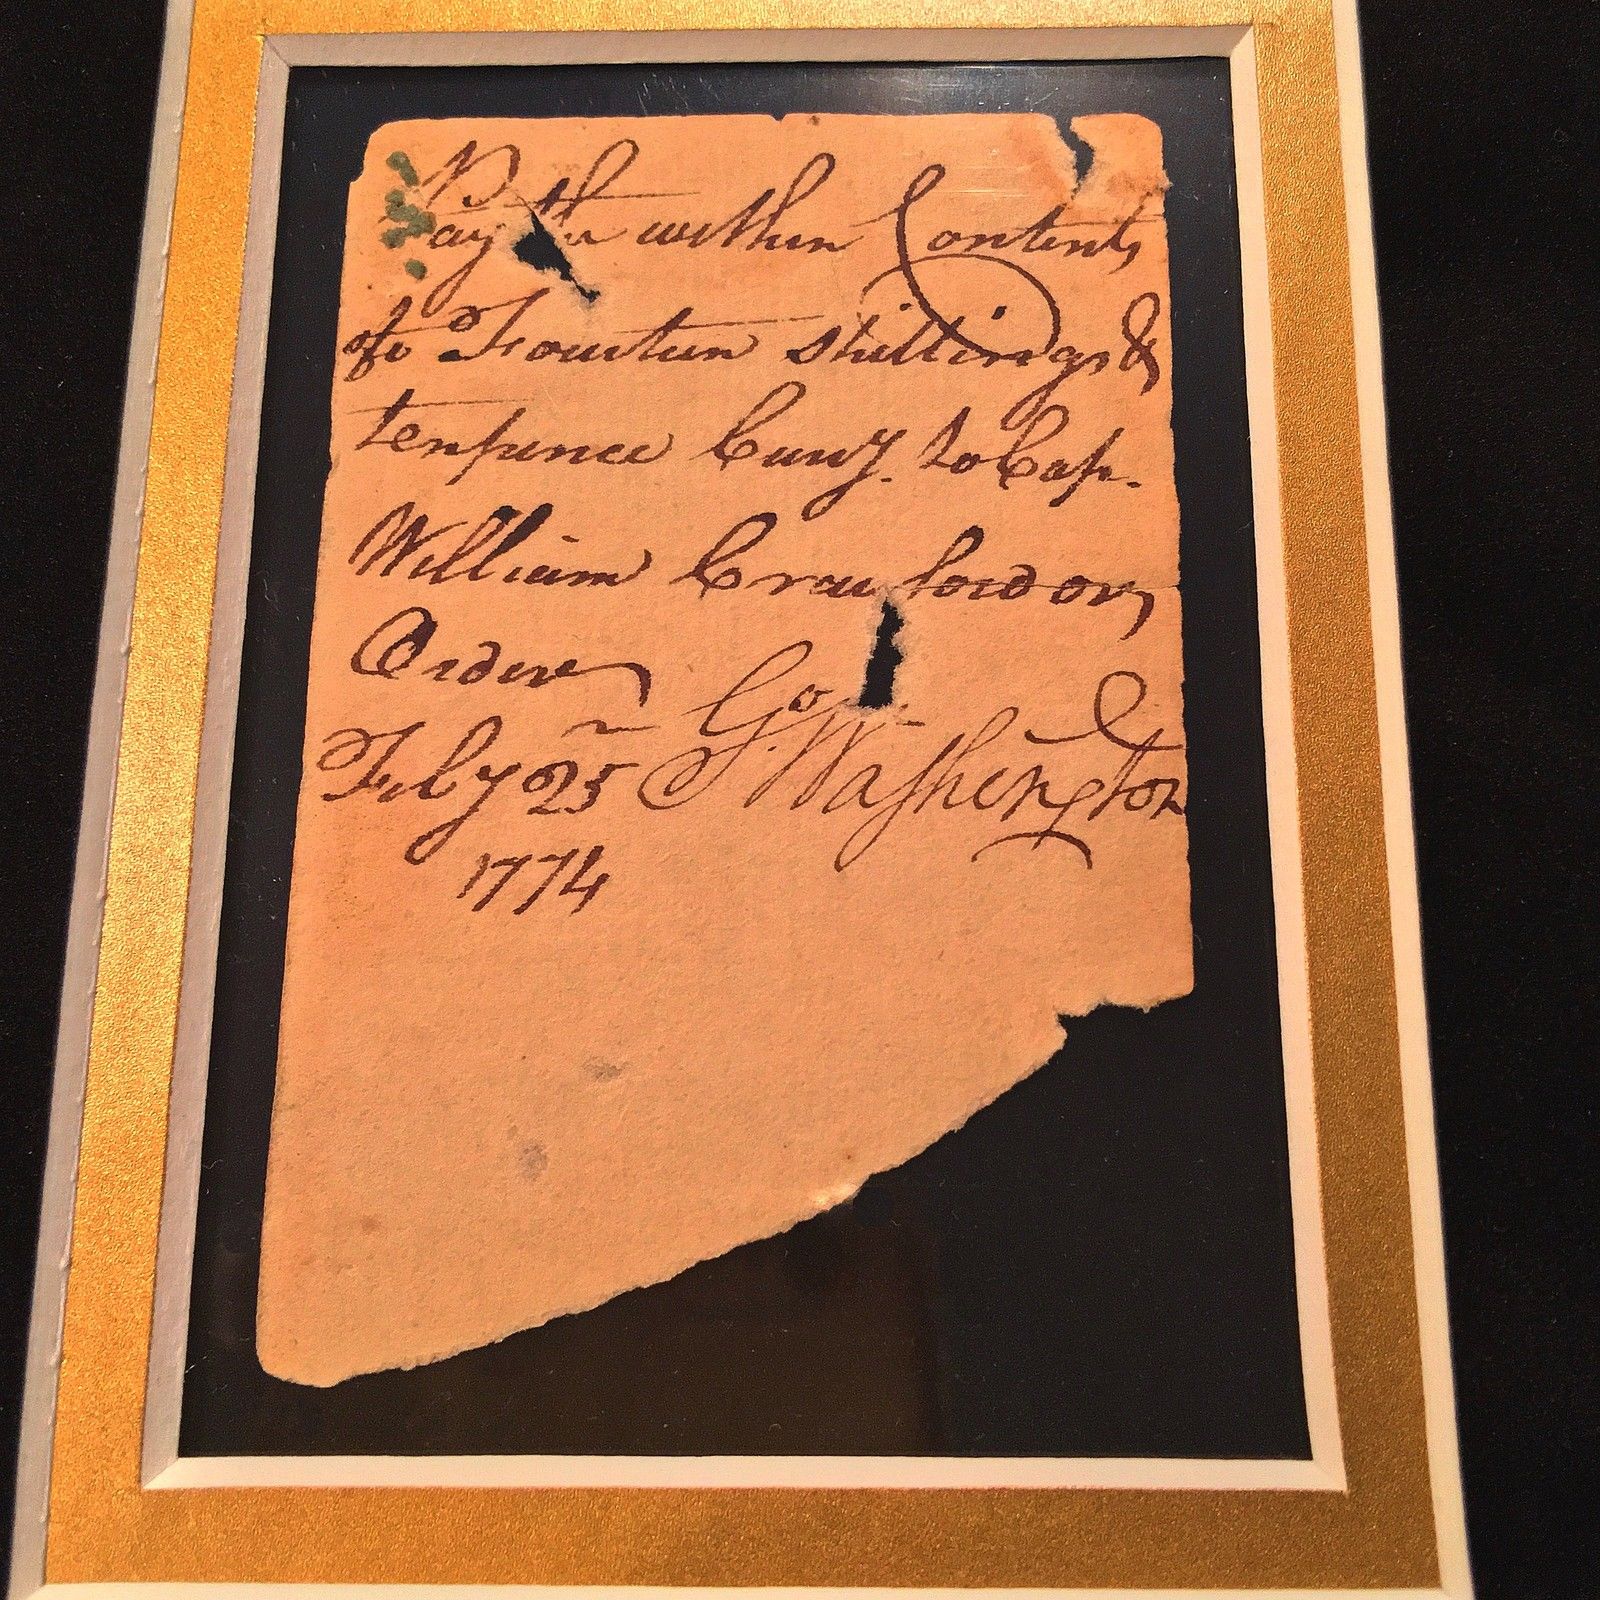 Pay the within Contents
of Fourteen shillings &
tenpence Curry. to Cap.
William Crawford or
Order
Feby 25 Go. Washington
1774